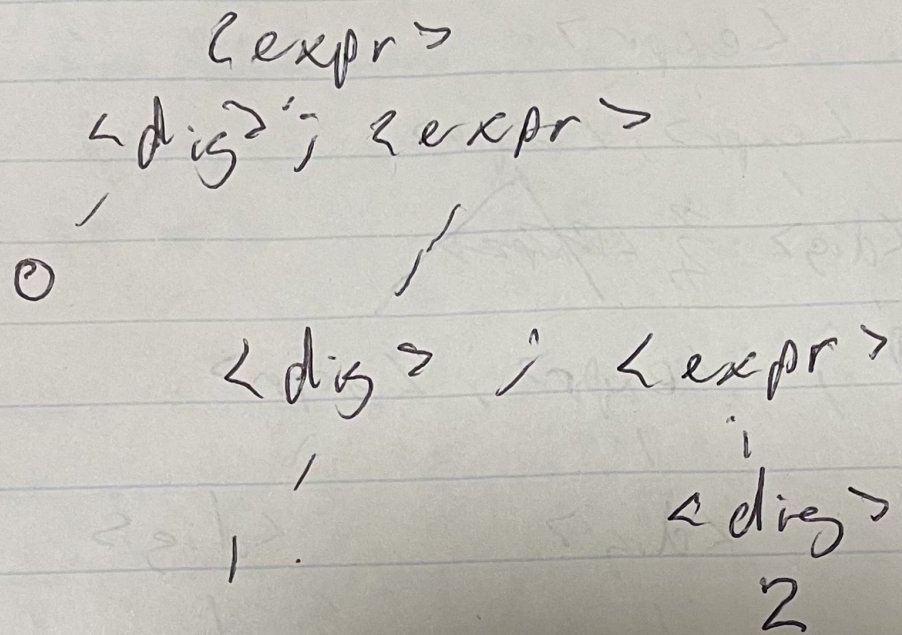 <expr>
<dig> ; <expr>
0
<dig> ; <expr>
<dig>
1
2